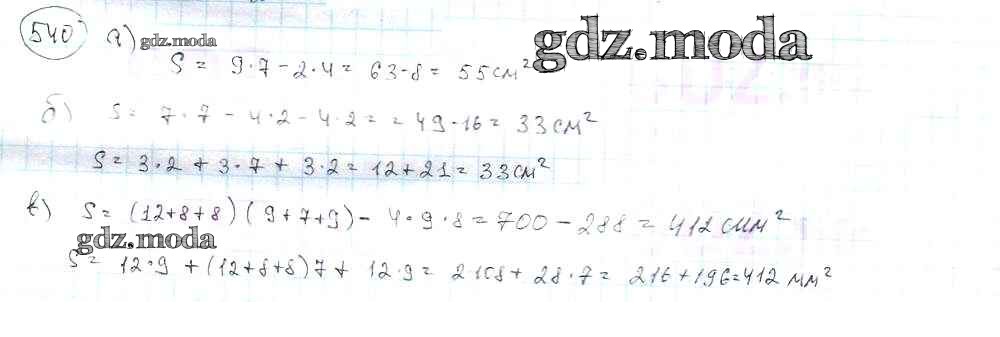 540 а) gdz.moda gdz.moda
S = 9·7 - 2·4 = 63-8 = 55 см²
б) S = 7·7 - 4·2 - 4·2 = = 49-16 = 33 см²
S = 3·2 + 3·7 + 3·2 = 12+21 = 33 см²
в) S = (12+8+8)(9+7+9) - 4·9·8 = 700 - 288 = 412 мм²
gdz.moda
S = 12·9 + (12+8+8)7 + 12·9 = 2·108 + 28·7 = 216+196=412 мм²